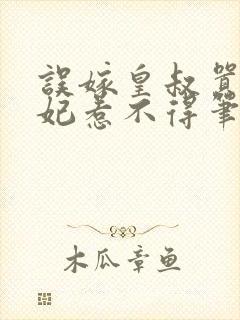 誤嫁皇叔
妃惹不得筆
木瓜章鱼